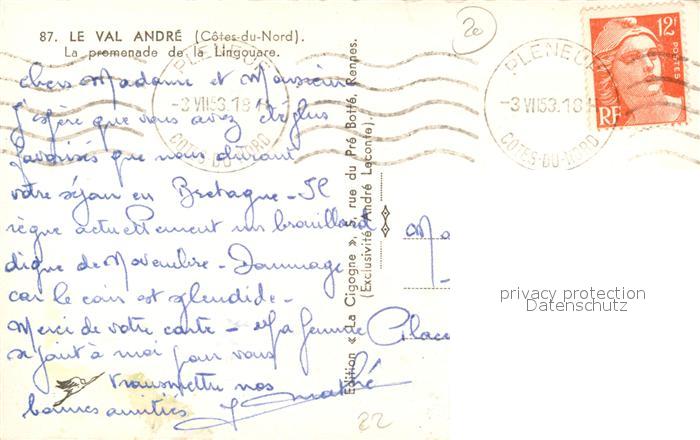 87. LE VAL ANDRÉ (Côtes-du-Nord).
La promenade de la Lingouare.
chers Madame et Monsieur
J'espère que vous avez été plus
favorisés que nous durant
votre séjour en Bretagne - Il
règne actuellement un brouillard
digne de Novembre - Dommage
car le coin est splendide -
Merci de votre carte - Ma femme
se joint à moi pour vous
transmettre nos
bonnes amitiés
Edition « La Cigogne », rue du Pré Botté, Rennes.
(Exclusivité André Leconte).
PLENEUF
-3 VII 53.18
COTES-DU-NORD
PLENEUF
-3 VII 53.18
COTES-DU-NORD
12F
POSTES
RF
Ma
Place
privacy protection
Datenschutz
22